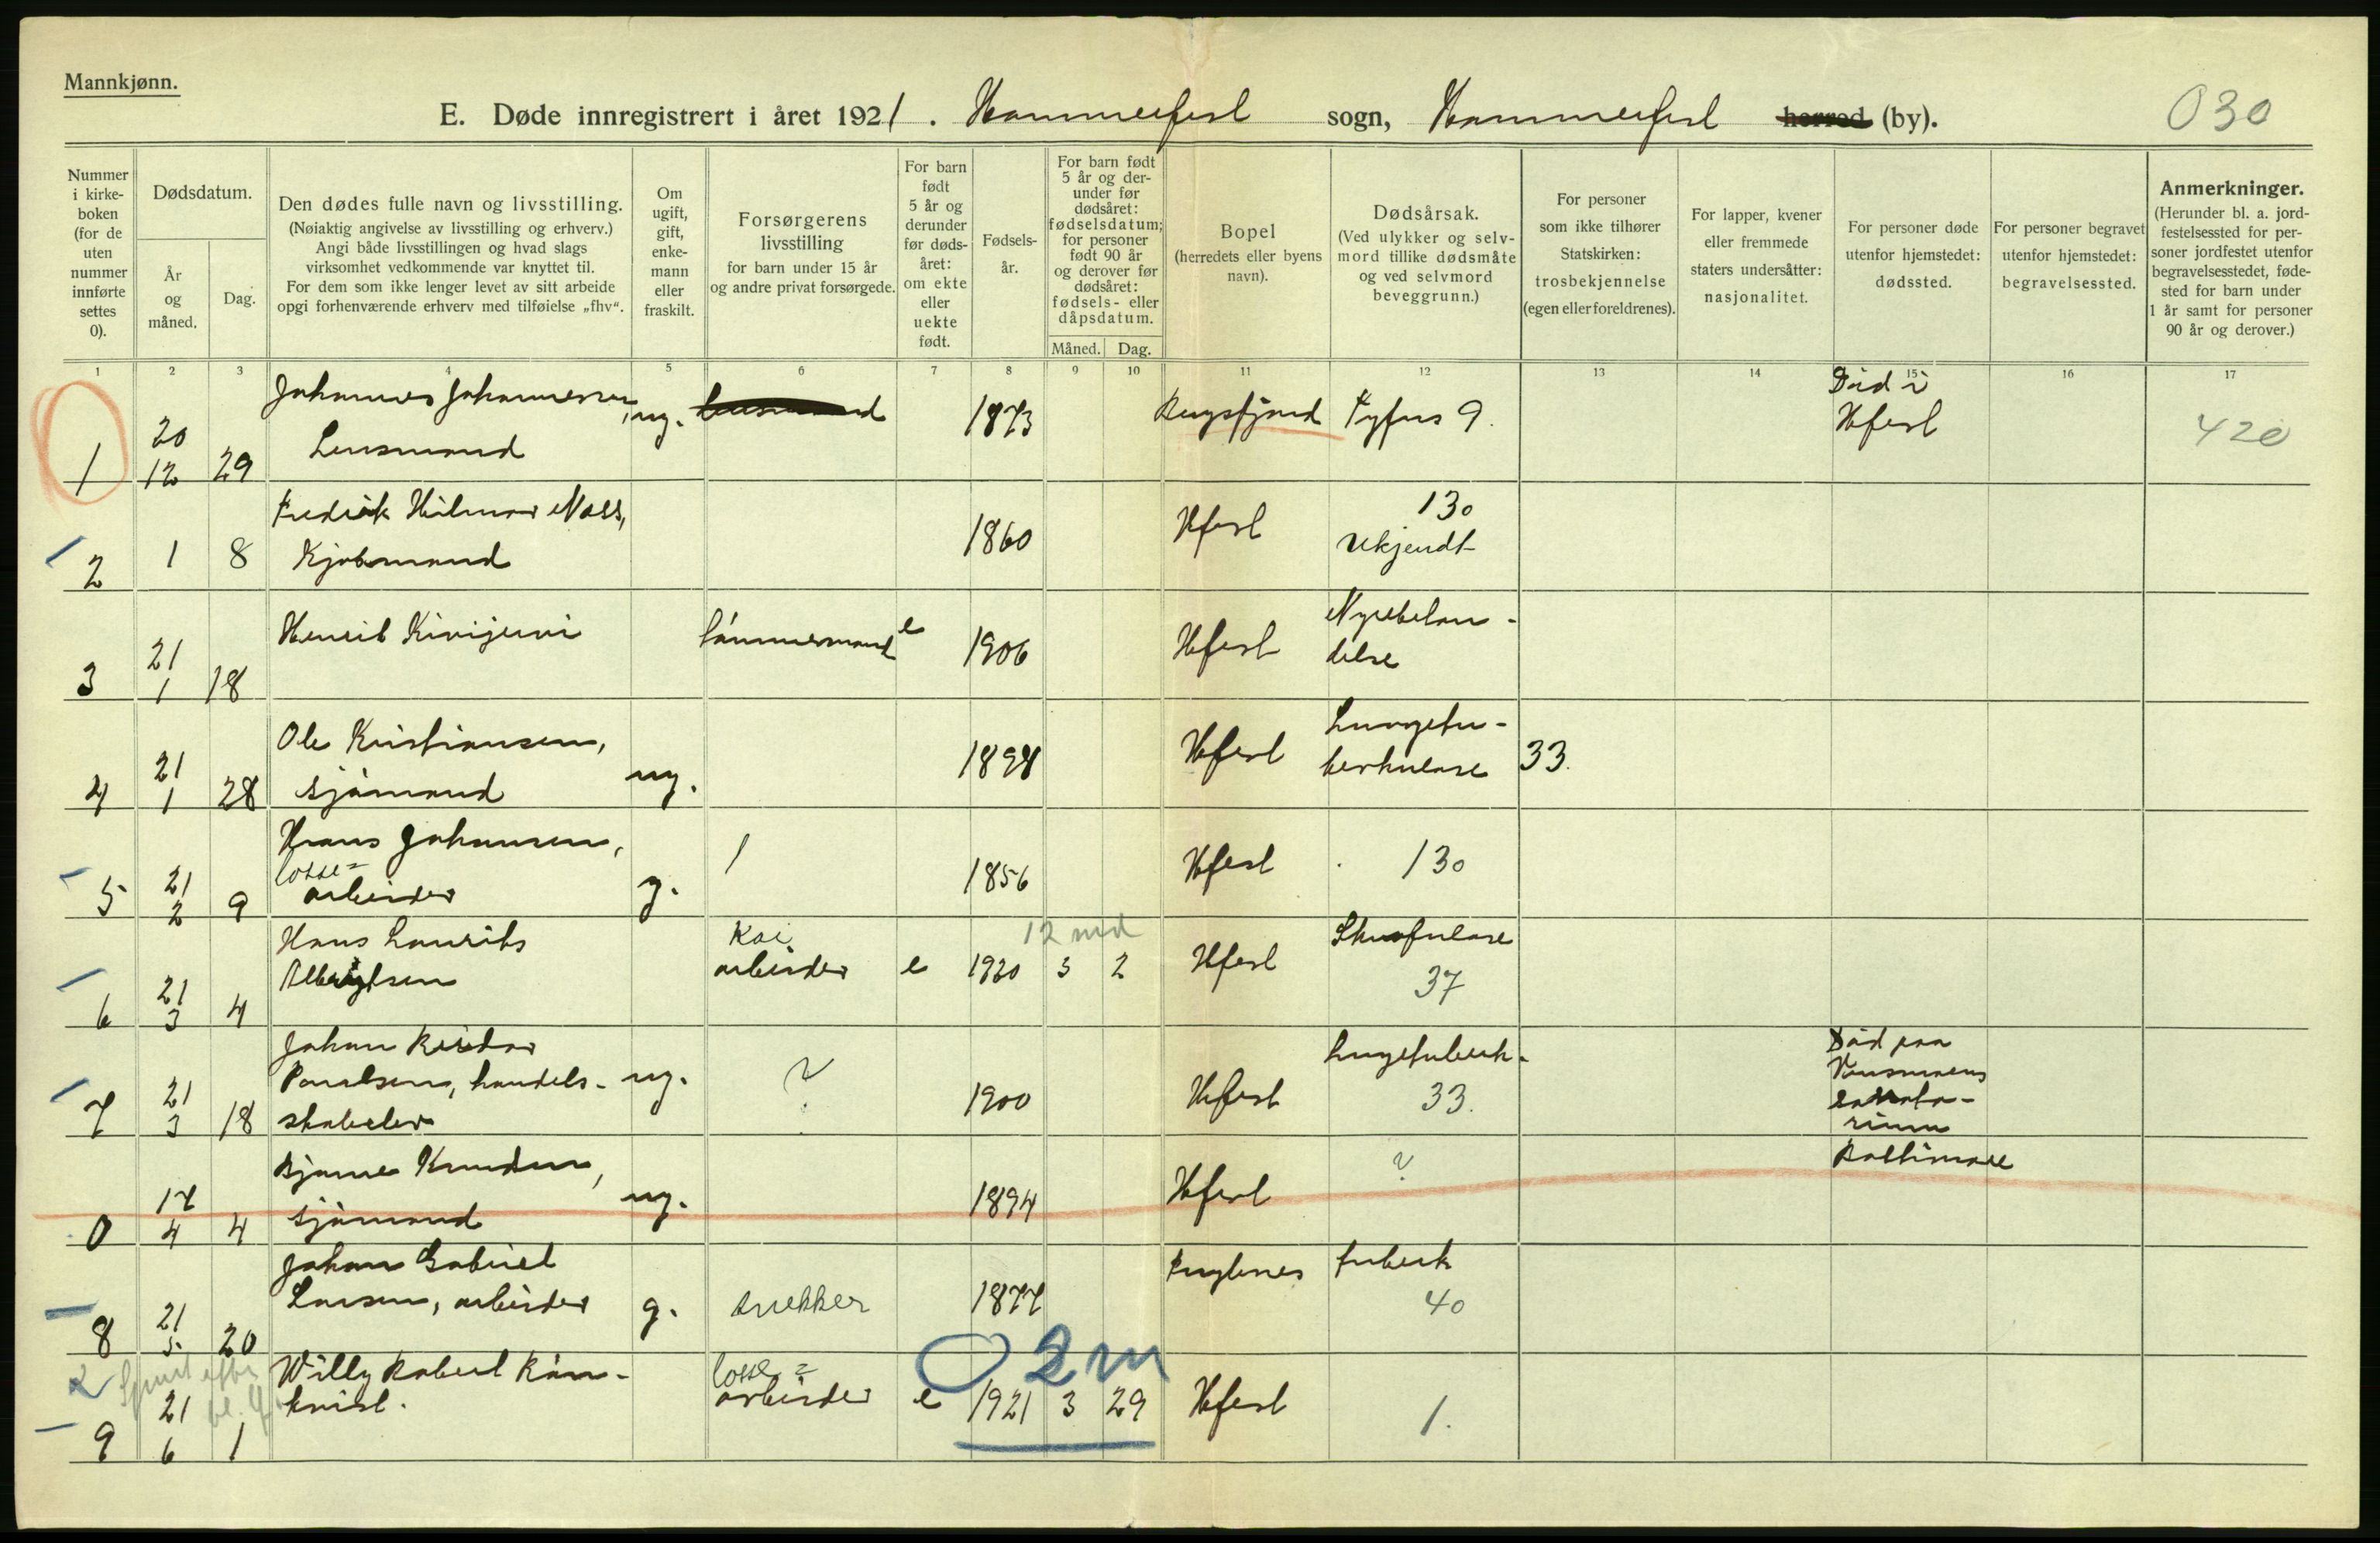 Mannkjønn.
E. Døde innregistrert i året 1921. Hammerfest sogn, Hammerfest herred (by).
030
Nummer i kirke-boken (for de uten nummer innførte settes 0).
Dødsdatum.
År og måned.
Dag.
Den dødes fulle navn og livsstilling.
(Nøiaktig angivelse av livsstilling og erhverv.)
Angi både livsstillingen og hvad slags
virksomhet vedkommende var knyttet til.
For dem som ikke lenger levet av sitt arbeide
opgi forhenværende erhverv med tilføielse „fhv“.
Om ugift, gift, enke-mann eller fraskilt.
Forsørgerens livsstilling
for barn under 15 år
og andre privat forsørgede.
For barn født 5 år og derunder før døds-året: om ekte eller uekte født.
Fødsels-år.
For barn født 5 år og der-under før dødsåret: fødselsdatum; for personer født 90 år og derover før dødsåret: fødsels- eller dåpsdatum.
Måned. Dag.
Bopel
(herredets eller byens navn).
Dødsårsak.
(Ved ulykker og selv-mord tillike dødsmåte og ved selvmord beveggrunn.)
For personer som ikke tilhører Statskirken: trosbekjennelse (egen eller foreldrenes).
For lapper, kvener eller fremmede staters undersåtter: nasjonalitet.
For personer døde utenfor hjemstedet: dødssted.
For personer begravet utenfor hjemstedet: begravelsessted.
Anmerkninger.
(Herunder bl. a. jord-festelsessted for per-soner jordfestet utenfor begravelsesstedet, føde-sted for barn under 1 år samt for personer 90 år og derover.)
1 2 3 4 5 6 7 8 9 10 11 12 13 14 15 16 17
1 20 12 29 Johannes Johannesen, Lensmand ug. 1873 Tyfus 9. Død i Hfest 420
2 1 8 Fredrik Hilmar Næss, Kjøbmand 1860 Hfest 130 Ukjendt
3 21 1 18 Henrik Kivijervi tømmermand e 1906 Hfest Nyrebetæn-delse
4 21 1 28 Ole Kristiansen, sjømand ug. 1898 Hfest Lungetu-berkulose 33.
5 21 2 9 Hans Johansen, losse=arbeider g. 1 1856 Hfest 130
6 21 3 4 Hans Laurits Albrigtsen Kai arbeider e 1920 3 2 12 md Hfest Skrofulose 37
7 21 3 18 Johan Reidar Paulsen, handels-skoleelev ug. ? 1900 Hfest Lungetuberk. 33. Død paa Vensmoens sanato-rium
0 17 4 4 Bjarne Knudsen, sjømand ug. 1894 Hfest ? Baltimore
8 21 5. 20 Johan Gabriel Larsen, arbeider g. snekker 1877 Fuglenes tuberk 40
9 21 6 1 Willy Robert Røn-kvist. losse=arbeider e 0 2 m 1921 3 29 Hfest 1.